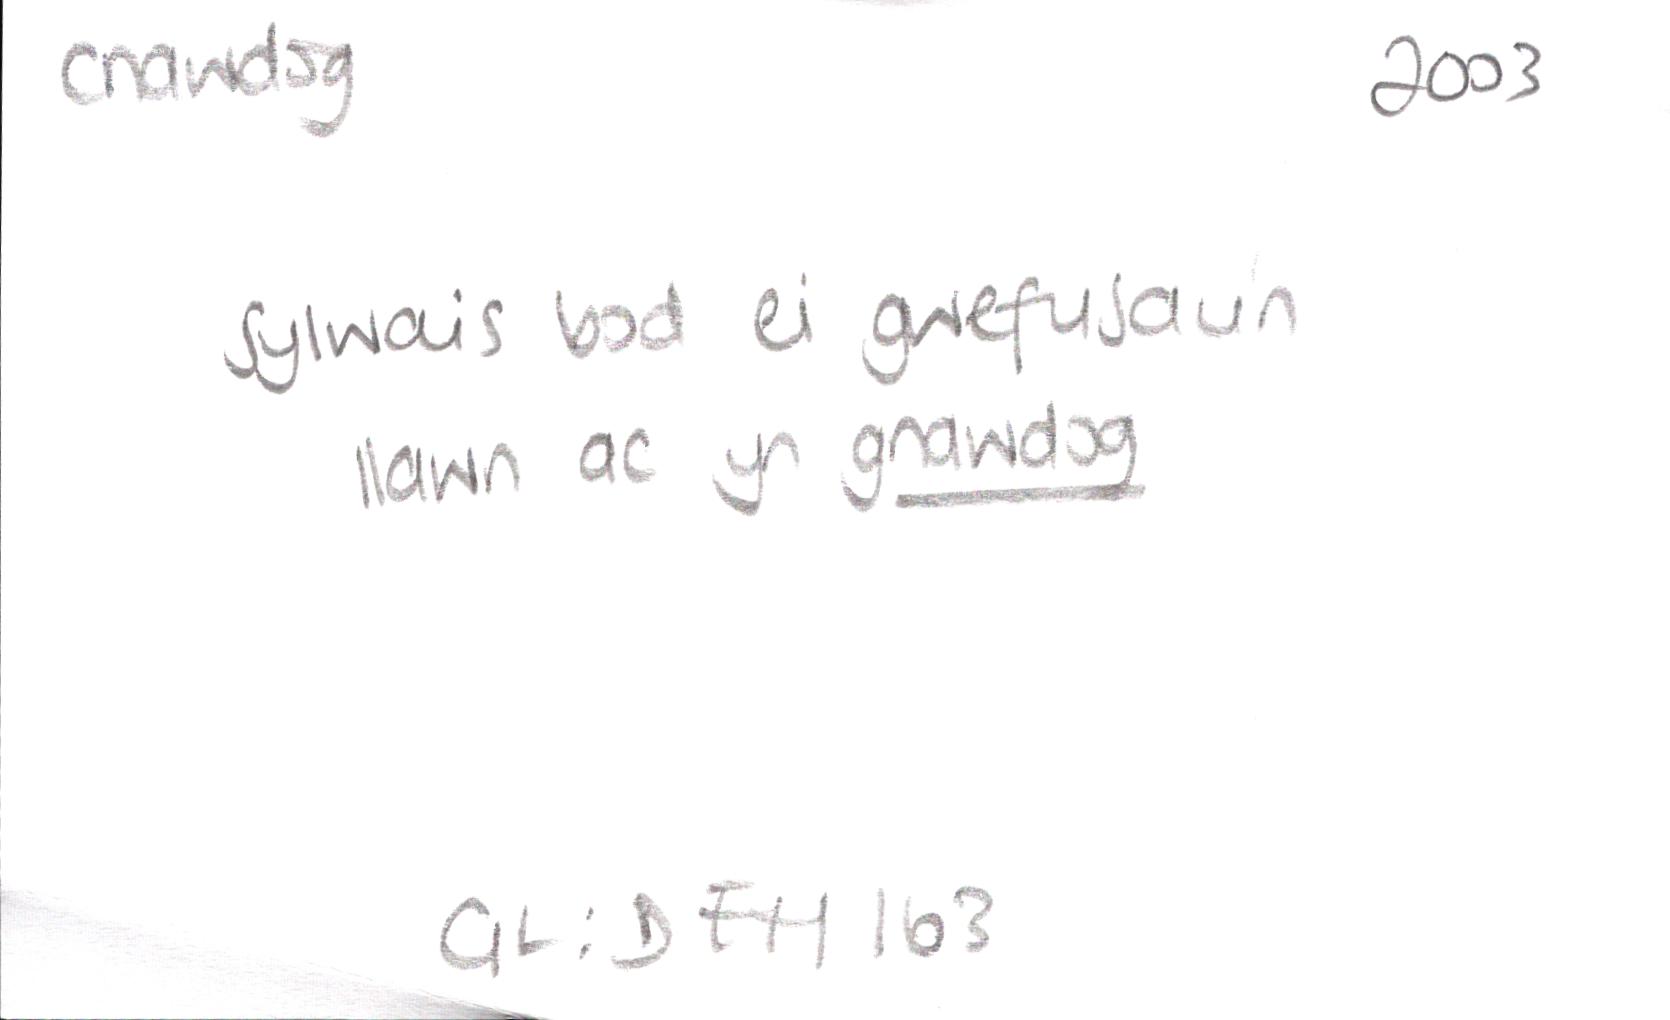 cnawdog 2003
sylwais bod ei gwefusau'n
llawn ac yn gnawdog
GL: DFH 163